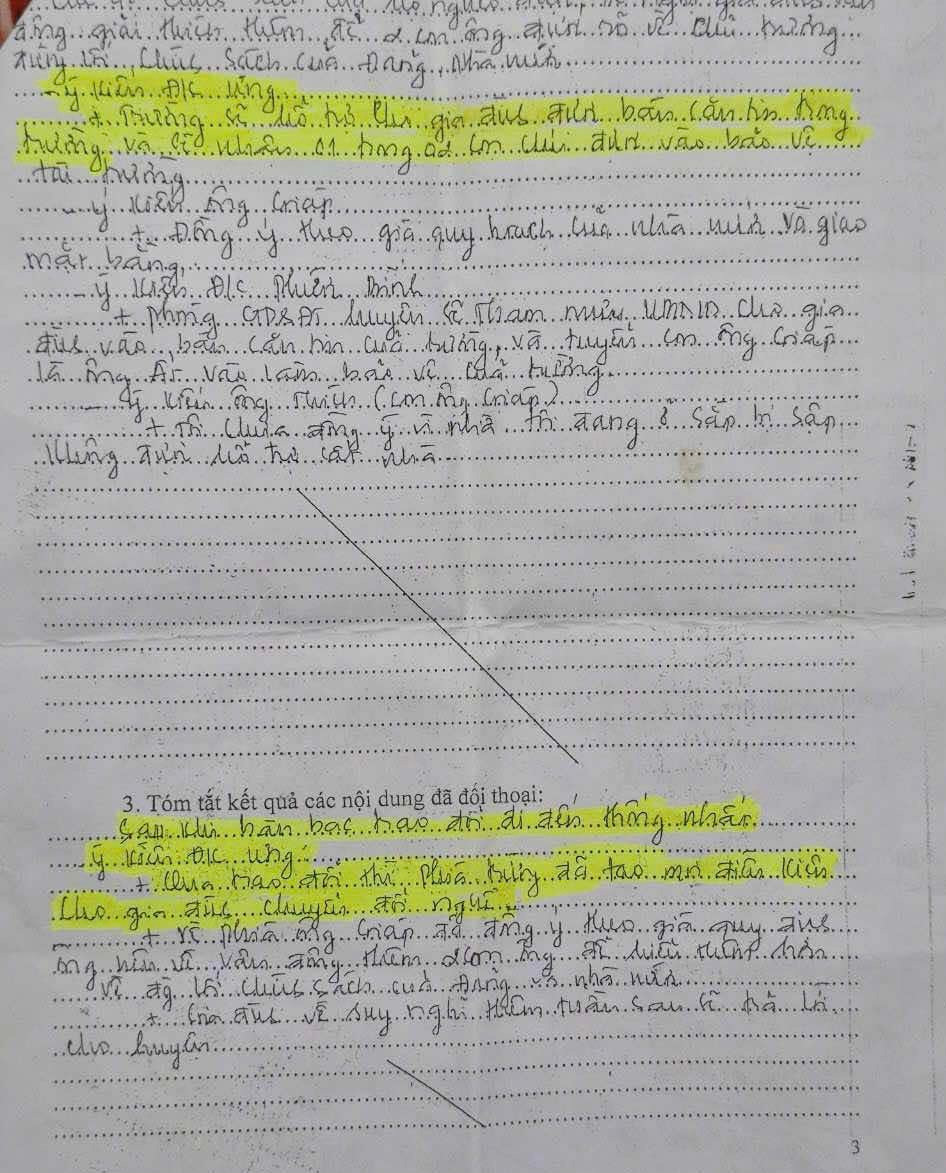 ông giải thích thêm để 2 con ông được rõ về chủ trương
đường lối, chính sách của Đảng, nhà nước
- Ý kiến Đ/c Ứng
+ Trường sẽ hỗ trợ cho gia đình được bán căn tin trong
trường và sẽ nhận 01 trong 02 con chú được vào bảo vệ
tại trường
- Ý kiến ông Giáp
+ Đồng ý theo giá quy hoạch của nhà nước và giao
mặt bằng,
- Ý kiến Đ/c Thuến Bình
+ Phòng GD&ĐT huyện sẽ tham mưu UBND cho gia
đình vào bán căn tin của trường, và tuyển con ông Giáp
là ông Át vào làm bảo vệ của trường.
- Ý kiến ông Thiết (con ông Giáp)
+ Tôi chưa đồng ý vì nhà tôi đang ở sắp bị sập
không được hỗ trợ cất nhà
3. Tóm tắt kết quả các nội dung đã đối thoại:
Sau khi bàn bạc trao đổi đi đến thống nhất
ý kiến Đ/c Ứng:
+ Qua trao đổi thì phía trường đã tạo mọi điều kiện
cho gia đình chuyển đổi nghề
+ Về phía ông Giáp đã đồng ý theo giá quy định
ông nên về vận động thêm 2 con ông để hiểu thêm hơn
về đg lối chính sách của Đảng và nhà nước
+ Gia đình về suy nghĩ thêm tuần sau sẽ trả lời
cho huyện
3